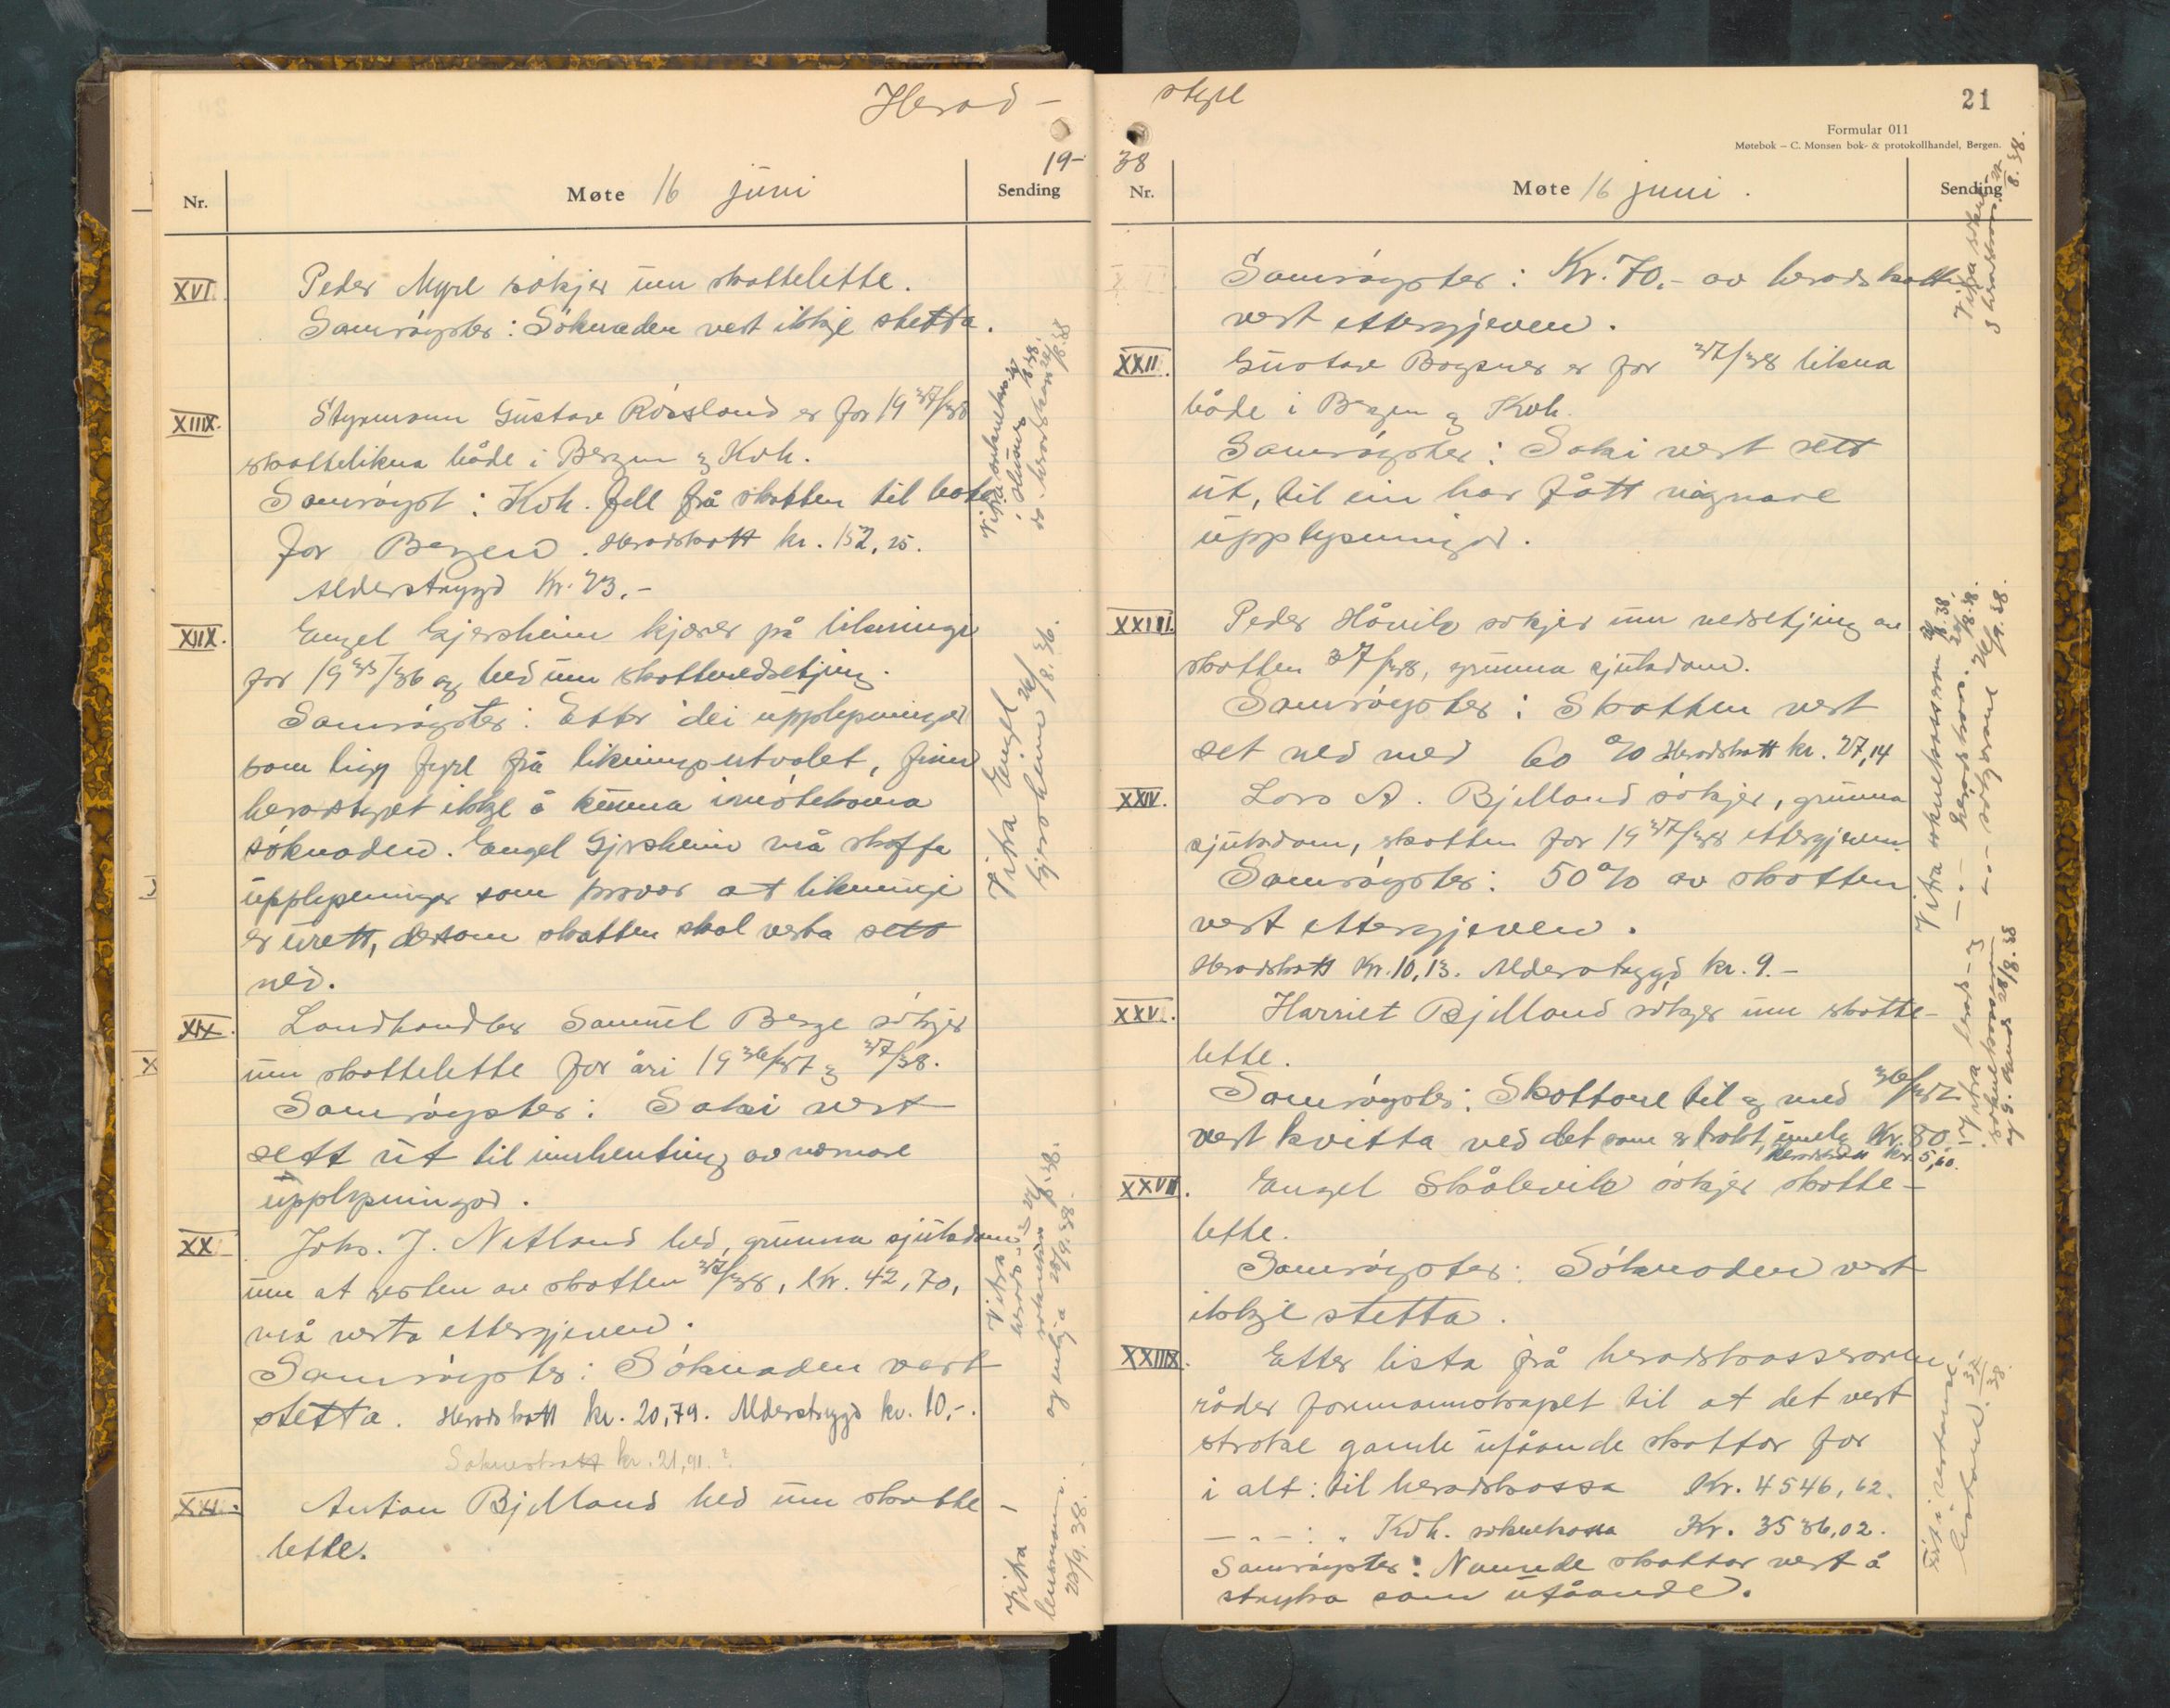 Herad -
19-
Nr.
Møte 16 juni
Sending
XVI.
Peder Myre søkjer um skattelette.
Samrøystes: Søknaden vert ikkje stetta.
XIIIX.
Styrmann Gustav Røssland er for 19 37/38
skattelikna både i Bergen og Kvh.
Samrøyst: Kvh. fell frå skatten til bate
for Bergen. Heradskatt kr. 152,25.
Alderstrygd Kr. 23.-
XIIX.
Engel Gjersheim kjærer på likningi
for 19 35/36 og bed um skattenedsetjing.
Samrøystes: Etter dei upplysningar
som ligg fyre frå likningsutvalet, finn
heradstyret ikkje å kunna imøtekoma
søknaden. Engel Gjersheim må skaffa
upplysningar som provar at likningi
er urett, dersom skatten skal verta sett
ned.
XIX.
Landhandlar Samuel Berge søkjer
um skattelette for åri 19 36/37 og 37/38.
Samrøystes: Saki vert
sett ut til innhenting av nærmare
upplysningar.
XX
Johs. J. Netland bed, grunna sjukdom
um at resten av skatten 37/38, Kr. 42,70,
må verta ettergjeven.
Samrøystes: Søknaden vert
stetta. Heradskatt kr. 20,79. Alderstrygd kr. 10,-.
Sokneskatt kr. 21,91.?
XXI.
Anton Bjelland bed um skatte-
lette.
Vitra soknekass 27/8.38.
i Husnes
do. heradskass 26/8.38
Vitra Engel
Gjersheim 26/8.36.
Vitra
herads- og 26/8.38.
soknekass
23/9.38.
Vitra
lensmann
23/9.38.
styre
38
21
Formular 011
Møtebok – C. Monsen bok- & protokollhandel, Bergen.
Nr.
Møte 16 juni.
Sending
Samrøystes: Kr. 70,- av heradskatten
vert ettergjeven.
XXII.
Gustav Bogsnes er for 37/38 likna
både i Bergen og Kvh.
Samrøystes: Saki vert sett
ut, til ein har fått nøgnare
upplysningar.
XXIII.
Peder Håvik søkjer um nedsetjing av
skatten 37/38, grunna sjukdom.
Samrøystes: Skatten vert
set ned med 60 % Heradskatt kr. 27,14
XXIV.
Lars A. Bjelland søkjer, grunna
sjukdom, skatten for 19 37/38 ettergjeven.
Samrøystes: 50 % av skatten
vert ettergjeven.
Heradskatt Kr. 10,13. Alderstrygd kr. 9.-
XXV.
Harriet Bjelland søkjer um skatte-
lette.
Samrøystes: Skattane til og med 36/37
vert kvitta ved det som er trekt, Kr. 50
Heradskatt kr. 5,60.
XXVII.
Engel Skålevik søkjer skatte-
lette.
Samrøystes: Søknaden vert
ikkje stetta.
XXIIX.
Etter lista frå heradskasseraren
råder formannskapet til at det vert
stroke gamle ufåande skattar for
i alt: til heradskassa Kr. 4546,62.
- " - : " Kvh. soknekassa Kr. 3536,02.
Samrøystes: Nemnde skattar vert å
stryka som ufåande.
Vitra sokne
og heradskass. 27/8.38.
Vitra soknekasseraren 26/8.38.
-"- heradskass. 26/8.38.
-"- 26/9.38.
Vitra herads- og
soknekasseraren
28/8.38